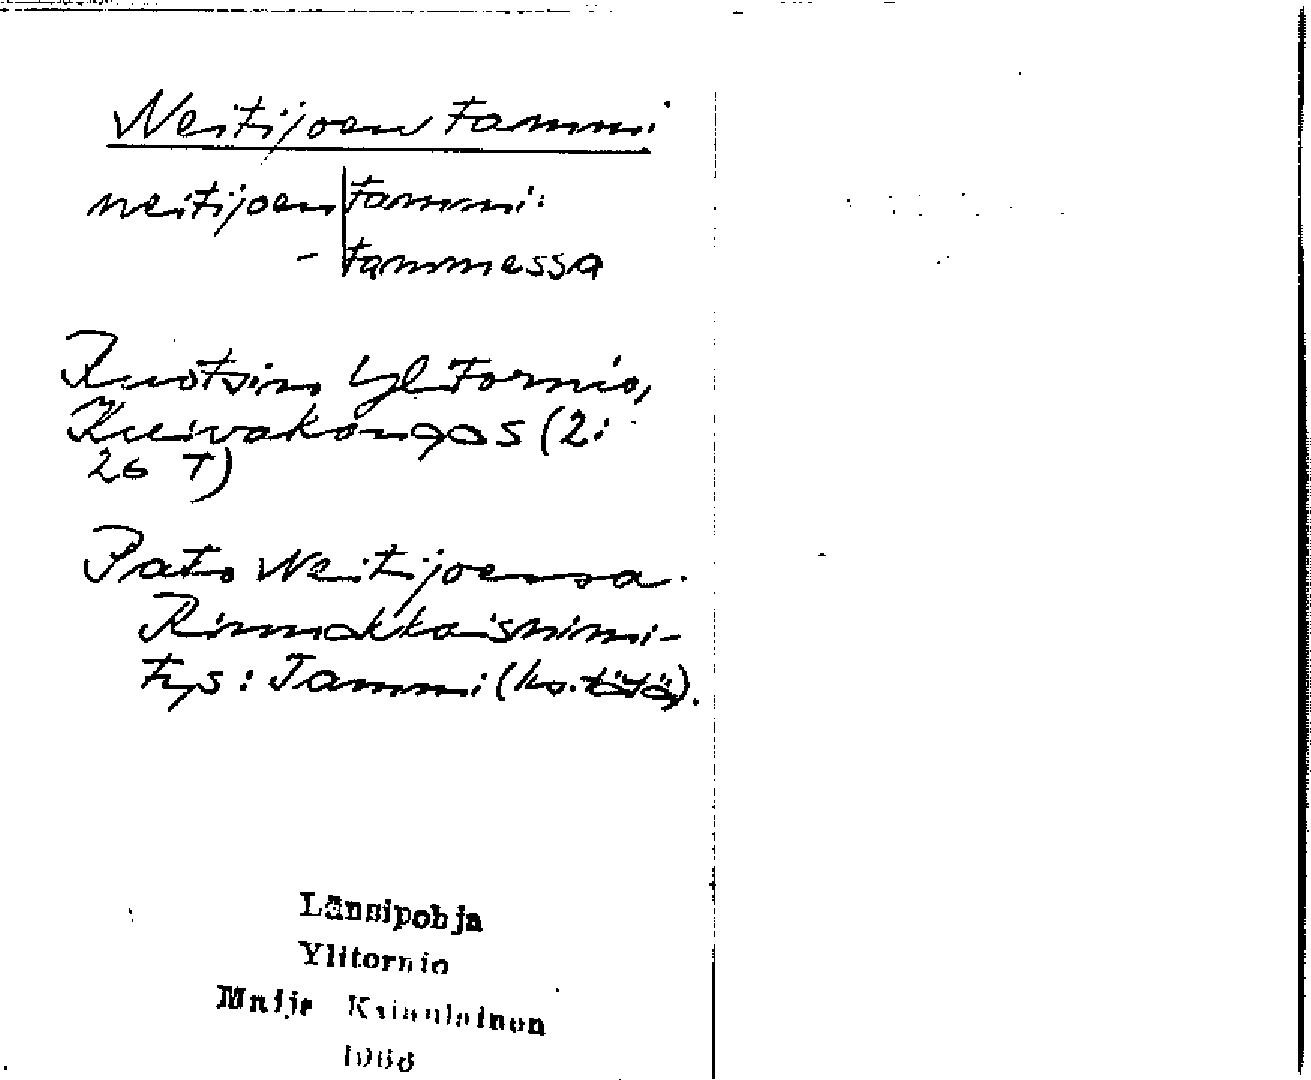 Neitijoen tammi
neitijoen|tammi:
- |tammessa
Ruotsin Ylitornio,
Kuivakangas (2:
26 T)
Pato Neitijoessa.
Rinnakkaisnimi-
tys: Tammi (ks. tätä).
Länsipohja
Ylitornio
Maija Kainulainen